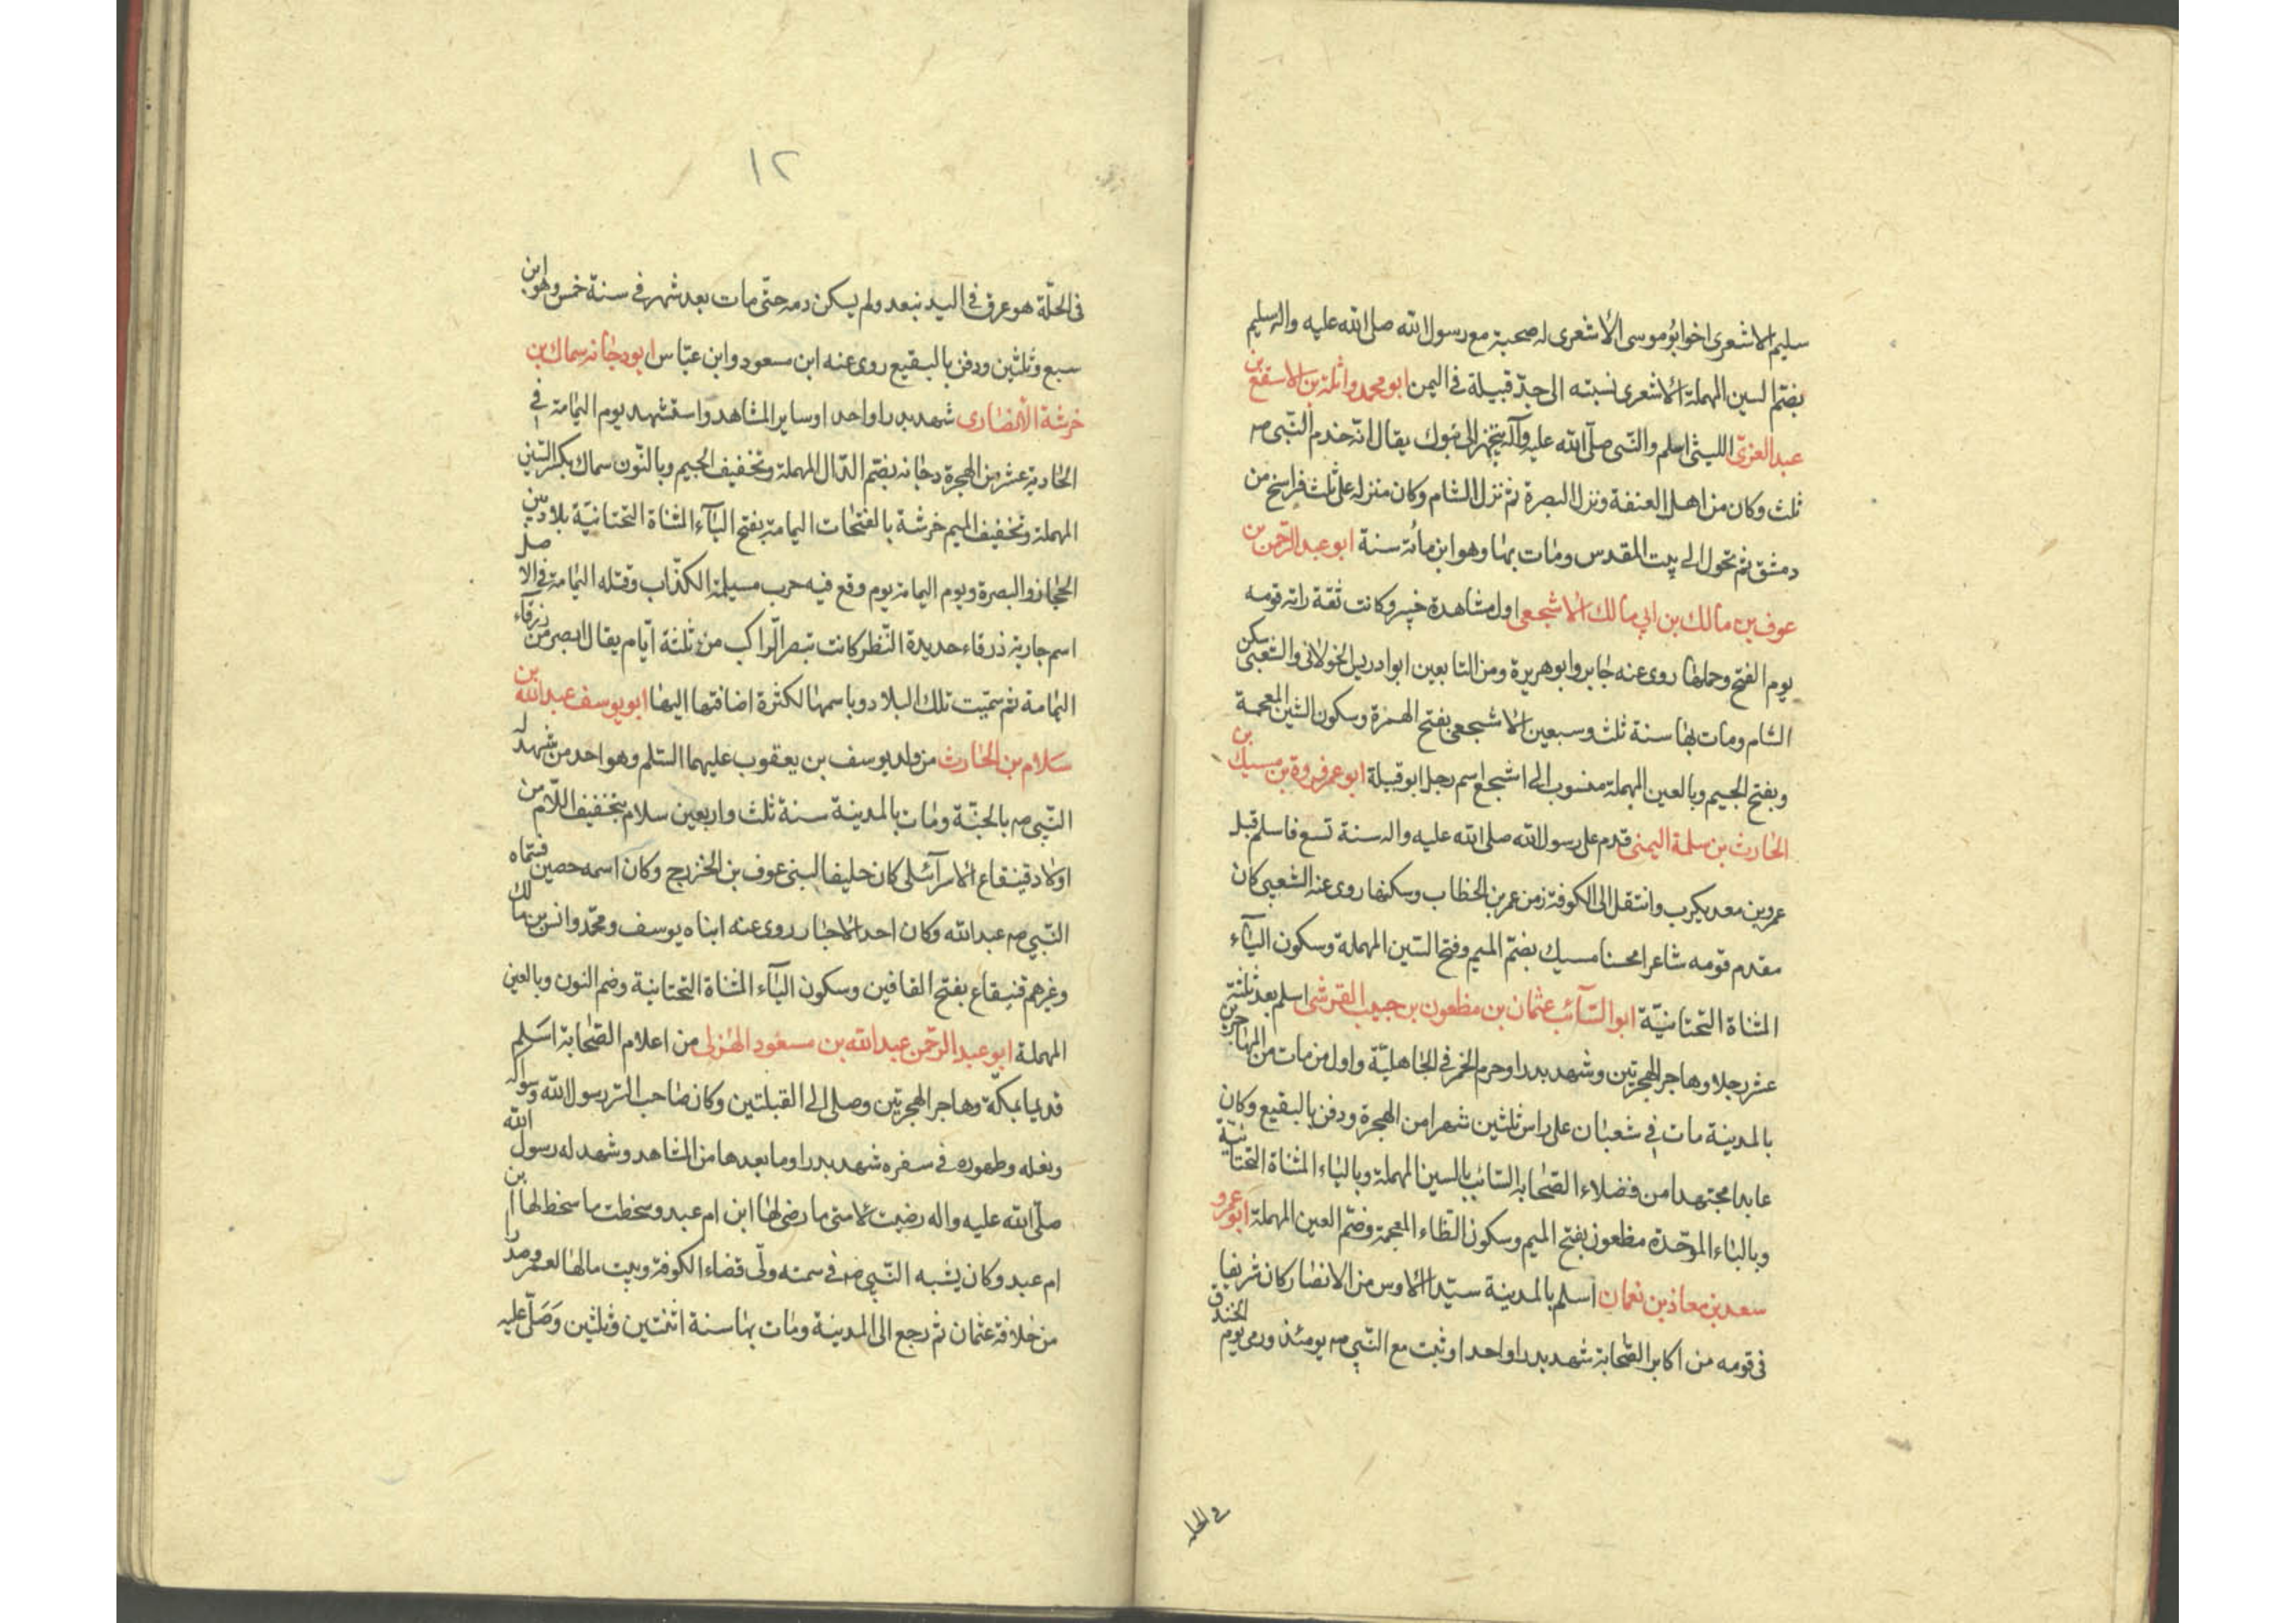 سليم الاشعرى اخو ابو موسى الاشعرى له صحبة مع رسول الله صلى الله عليه واله سليم
بضم السين المهملة الاشعرى نسبته الى جد قبيلة فى اليمن ابو محمد واثلة بن الاسقع بن
عبد العزى الليثى اسلم والنبى صلى الله عليه وآله يتجهز الى تبوك يقال انه خدم النبى صم
ثلث وكان من اهل العنفة ونزل البصرة ثم نزل الشام وكان منزله على ثلث فراسخ من
دمشق ثم تحول الى بيت المقدس ومات بها وهو ابن مائة سنة ابو عبد الرحمن بن
عوف بن مالك بن ابي مالك الاشجعى اول مشاهدة خيبر وكانت ثقة راته قومه
يوم الفتح وحملها روى عنه جابر وابو هريرة ومن التابعين ابو ادريس الخولانى والشعبى سكن
الشام ومات بها سنة ثلث وسبعين الاشجعى بفتح الهمزة وسكون الشين المعجمة
وبفتح الجيم وبالعين المهملة منسوب الى اشجع اسم رجل ابو قبيلة ابو عمر فروة بن مسيك بن
الحارث بن سلمة اليمنى قدم على رسول الله صلى الله عليه واله سنة تسع فاسلم قبل
عمرو بن معديكرب وانتقل الى الكوفة زمن عمر بن الخطاب وسكنها روى عنه الشعبى كان
مقدم قومه شاعرا محسنا مسيك بضم الميم وفتح السين المهملة وسكون الياء
المثناة التحتانية ابو السائب عثمان بن مظعون بن حبيب القرشى اسلم بعد ثلثة
عشر رجلا وهاجر الهجرتين وشهد بدرا وحرم الخمر فى الجاهلية واول من مات من المهاجرين
بالمدينة مات فى شعبان على راس ثلثين شهرا من الهجرة ودفن بالبقيع وكان
عابدا مجتهدا من فضلاء الصحابة السائب بالسين المهملة وبالياء المثناة التحتانية
وبالباء الموحدة مظعون بفتح الميم وسكون الظاء المعجمة وضم العين المهملة ابو عمرو
سعد بن معاذ بن نعمان اسلم بالمدينة سيد الاوس من الانصار كان شريفا
فى قومه من اكابر الصحابة شهد بدرا واحدا وثبت مع النبى صم يومئذ ورمى يوم الخندق
فى الحله
١٢
فى الحلة هو عرق فى اليد نبعد ولم يسكن دمه حتى مات بعد شهر فى سنة خمس وهو ابن
سبع وثلثين ودفن بالبقيع روى عنه ابن مسعود وابن عباس ابو دجانه سماك بن
خرشة الانصارى شهد بدرا واحدا وساير المشاهد واستشهد يوم اليمامة فى
الحادية عشر من الهجرة دجانه بضم الدال المهملة وتخفيف الجيم وبالنون سماك بكسر السين
المهملة وتخفيف الميم خرشة بالفتحات اليمامة بفتح الياء المثناة التحتانية بلاد بين
الحجاز والبصرة ويوم اليمامة يوم وقع فيه حرب مسيلمة الكذاب وقتله اليمامة فى الاصل
اسم جارية زرقاء حديدة النظر كانت تبصر الراكب من ثلثة ايام يقال ابصر من زرقاء
اليمامة ثم سميت تلك البلاد وباسمها لكثرة اضافتها اليها ابو يوسف عبد الله بن
سلام بن الحارث من ولد يوسف بن يعقوب عليهما السلم وهو احد من شهد له
النبى صم بالجنة ومات بالمدينة سنة ثلث واربعين سلام بتخفيف اللام من
اولاد قينقاع الاسرآئلى كان حليفا لبنى عوف بن الخزرج وكان اسمه حصين فسماه
النبى صم عبد الله وكان احد الاحبار روى عنه ابناه يوسف ومحمد وانس بن مالك
وغيرهم قنيقاع بفتح القافين وسكون الياء المثناة التحتانية وضم النون وبالعين
المهملة ابو عبد الرحمن عبد الله بن مسعود الهذلى من اعلام الصحابة اسلم
قديما بمكة وهاجر الهجرتين وصلى الى القبلتين وكان صاحب السر رسول الله وسواكه
ونعله وطهوره فى سفره شهد بدرا وما بعدها من المشاهد وشهد له رسول الله
صلى الله عليه واله رضيت لامتى ما رضى لها ابن ام عبد وسخطت ما سخط لها ابن
ام عبد وكان يشبه النبى صم فى سمته ولى قضاء الكوفة وبيت مالها لعمر وصدرا
من خلافة عثمان ثم رجع الى المدينة ومات بها سنة اثنتين وثلثين وصلى عليه